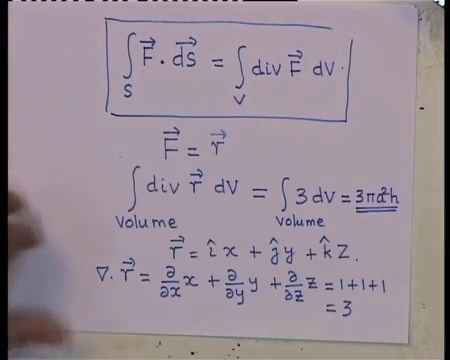 ∫_S F⃗ · ds⃗ = ∫_V div F⃗ dV.
F⃗ = r⃗
∫_Volume div r⃗ dV = ∫_Volume 3 dV = 3πa²h
r⃗ = îx + ĵy + k̂z.
∇· r⃗ = ∂/∂x x + ∂/∂y y + ∂/∂z z = 1+1+1
= 3